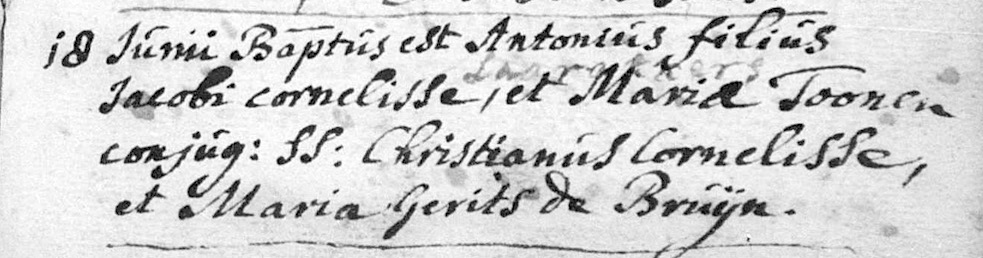 18 Junii Baptus est Antonius filius
Jacobi Cornelisse, et Mariæ Toonen
conjug: SS: Christianus Cornelisse,
et Maria Gerits de Bruÿn.